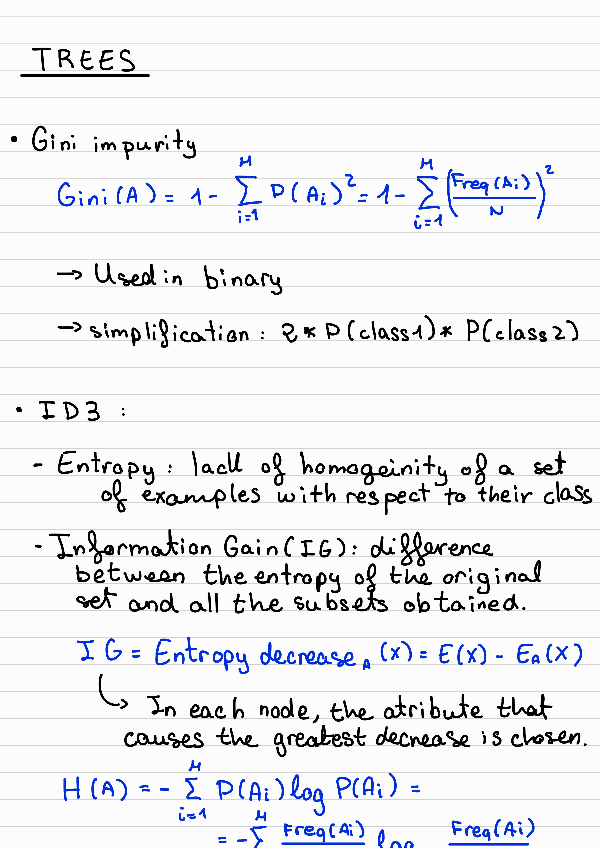 TREES
• Gini impurity
Gini(A) = 1 - ∑_{i=1}^{M} P(Ai)² = 1 - ∑_{i=1}^{M} (Freq(Ai)/N)²
→ Used in binary
→ simplification : 2 * P(class1) * P(class2)
• ID3 :
- Entropy : lack of homogeinity of a set
of examples with respect to their class
- Information Gain (IG) : difference
between the entropy of the original
set and all the subsets obtained.
IG = Entropy decrease_A (X) = E(X) - E_A(X)
↳ In each node, the atribute that
causes the greatest decrease is chosen.
H(A) = - ∑_{i=1}^{M} P(Ai) log P(Ai) =
= - ∑^{M} Freq(Ai) log Freq(Ai)